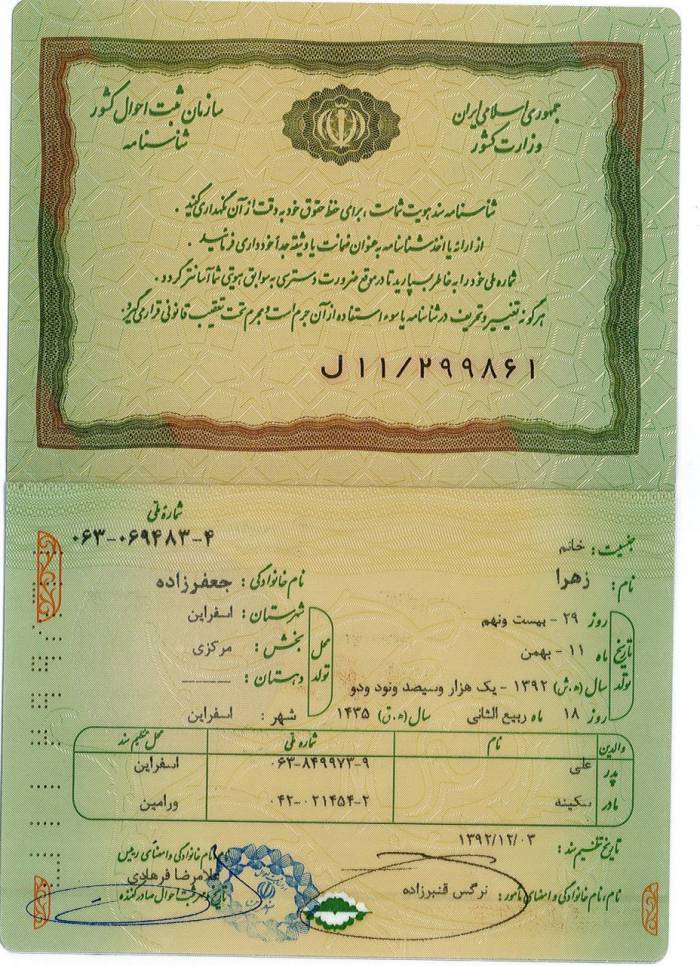 جمهوری اسلامی ایران
وزارت کشور
سازمان ثبت احوال کشور
شناسنامه
شناسنامه سند هویت شماست ، برای حفظ حقوق خود به دقت از آن نگهداری کنید .
از ارائه یا اخذ شناسنامه به عنوان ضمانت یا وثیقه جداً خودداری فرمائید .
شماره ملی خود را به خاطر بسپارید تا در موقع ضرورت دسترسی به سوابق هویتی شما آسانتر گردد .
هرگونه تغییر و تحریف در شناسنامه یا سوء استفاده از آن جرم است و مجرم تحت تعقیب قانونی قرار می‌گیرد.
ل ۱۱/۲۹۹۸۶۱
شماره ملی
۰۶۳-۰۶۹۴۸۳-۴
جنسیت : خانم
نام : زهرا
نام خانوادگی : جعفرزاده
تاریخ تولد
روز ۲۹ - بیست ونهم
ماه ۱۱ - بهمن
سال (ه.ش) ۱۳۹۲ - یک هزار وسیصد ونود ودو
روز ۱۸ ماه ربیع الثانی سال (ه.ق) ۱۴۳۵
محل تولد
شهرستان : اسفراین
بخش : مرکزی
دهستان : ـــــــ
شهر : اسفراین
والدین نام شماره ملی محل تنظیم سند
پدر علی ۰۶۳-۸۴۹۹۷۳-۹ اسفراین
مادر سکینه ۰۴۲-۰۲۱۴۵۴-۲ ورامین
تاریخ تنظیم سند : ۱۳۹۲/۱۲/۰۳
نام،نام خانوادگی و امضای مامور : نرگس قنبرزاده
نام،نام خانوادگی و امضای رییس
غلامرضا فرهادی
ثبت احوال صادرکننده